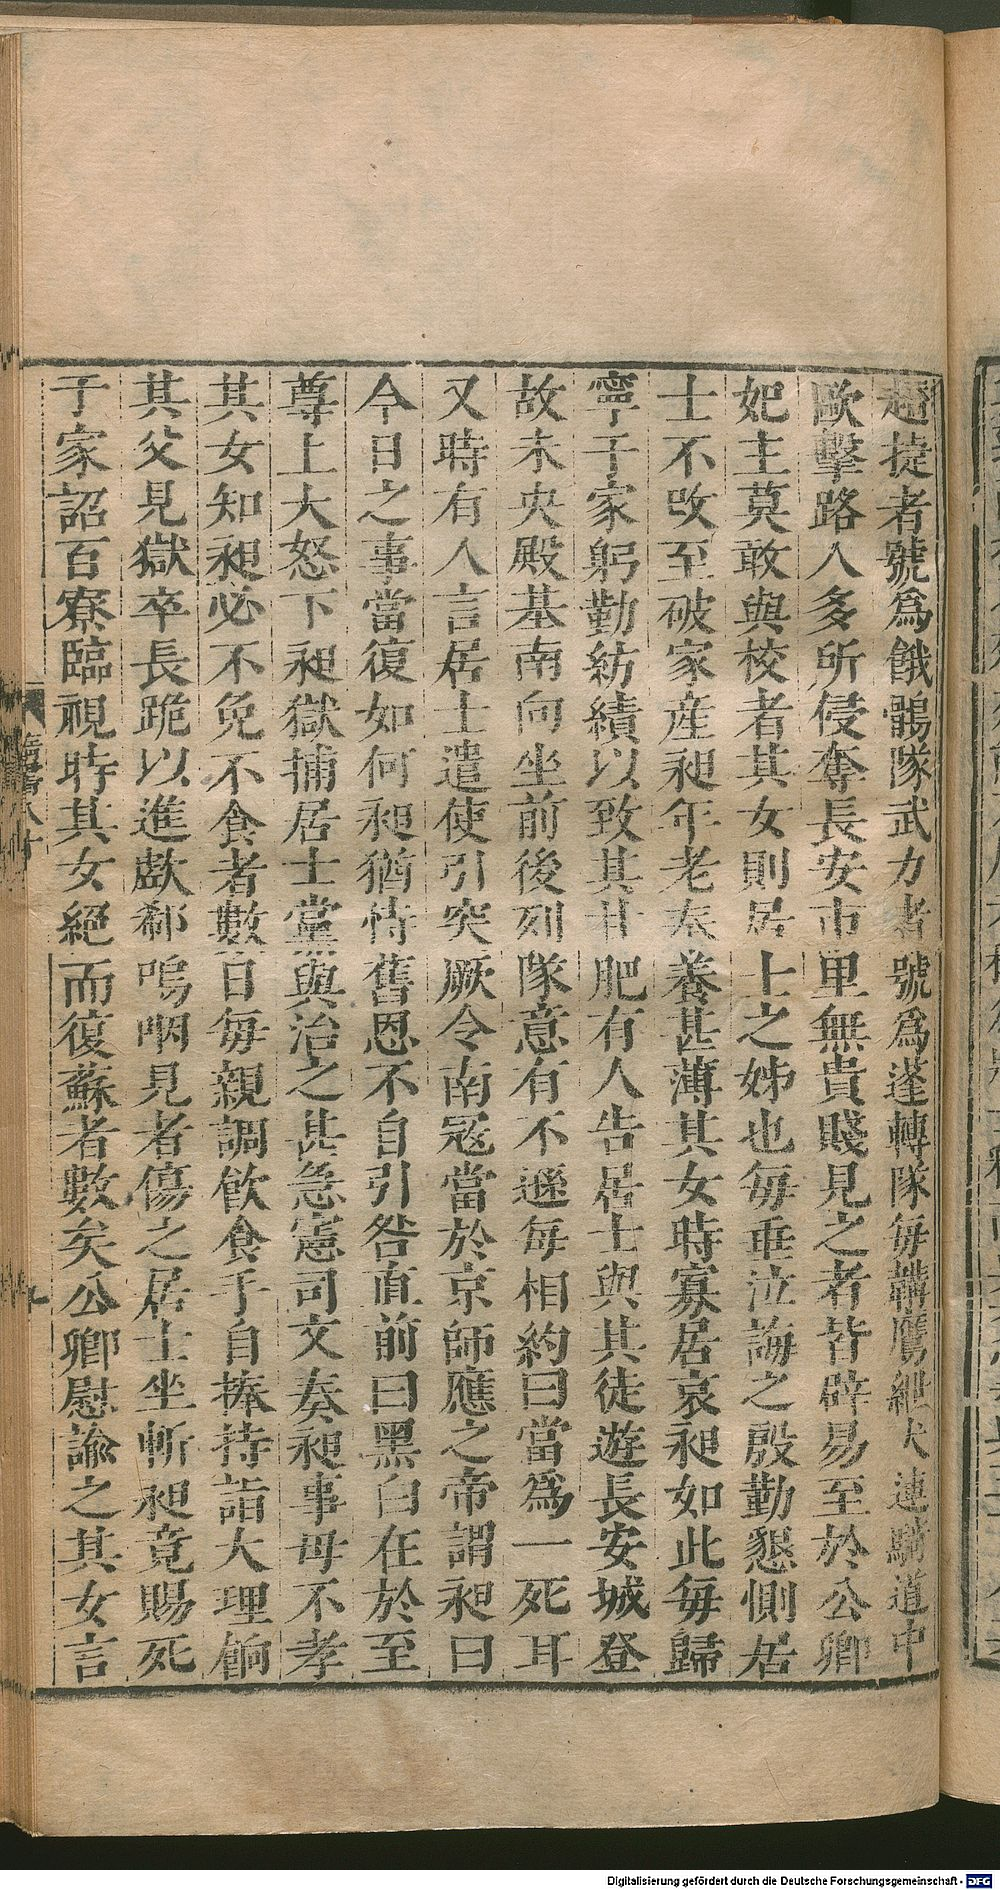 趫捷者號爲餓鶻隊武力者號爲蓬轉隊每韝鷹紲犬連騎道中
歐擊路人多所侵奪長安市里無貴賤見之者皆辟易至於公卿
妃主莫敢與校者其女則居士之姊也每垂泣誨之殷勤懇惻居
士不改至破家産昶年老奉養甚薄其女時寡居哀昶如此每歸
寧于家躬勤紡績以致其甘肥有人告居士與其徒遊長安城登
故未央殿基南向坐前後列隊意有不遜每相約曰當爲一死耳
又時有人言居士遣使引突厥令南冦當於京師應之帝謂昶曰
今日之事當復如何昶猶恃舊恩不自引咎直前曰黑白在於至
尊上大怒下昶獄捕居士黨與治之甚急憲司文奏昶事母不孝
其女知昶必不免不食者數日每親調飲食手自捧持詣大理餉
其父見獄卒長跪以進歔欷嗚咽見者傷之居士坐斬昶竟賜死
于家詔百寮臨視時其女絕而復蘇者數矣公卿慰諭之其女言
Digitalisierung gefördert durch die Deutsche Forschungsgemeinschaft - DFG